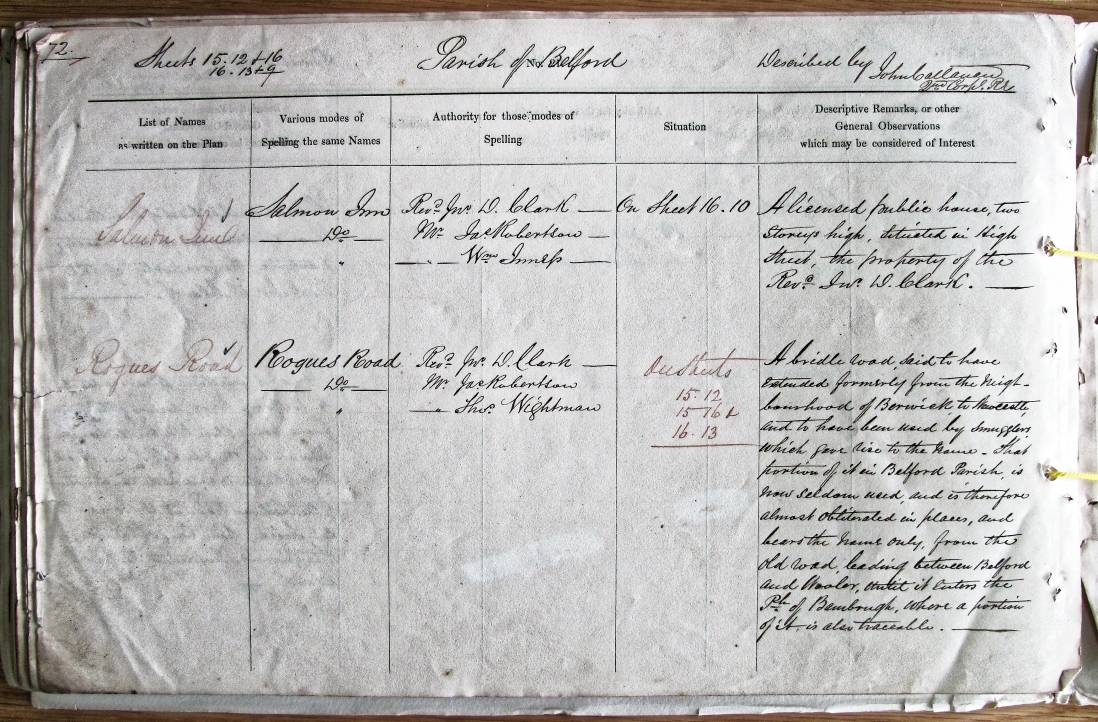 72.
Sheets 15.12 & 16
16.13 & 9
Parish of Belford
Described by John Callanan
Corpl. R.E.
List of Names
as written on the Plan
Various modes of
Spelling the same Names
Authority for those modes of
Spelling
Situation
Descriptive Remarks, or other
General Observations
which may be considered of Interest
Salmon Inn
Salmon Inn
Do
"
Revd. Jno. D. Clark
Mr. Jas Robertson
" Wm Inness
On Sheet 16.10
A licensed public house, two
storeys high, situated in High
Street, the property of the
Revd. Jno. D. Clark.
Rogues Road
Rogues Road
Do
"
Revd. Jno. D. Clark
Mr. Jas Robertson
" Thos. Wightman
On Sheets
15.12
15 16 &
16.13
A bridle road, said to have
extended formerly from the Neigh-
bourhood of Berwick to Newcastle,
and to have been used by Smugglers,
which gave rise to the Name. That
portion of it in Belford Parish, is
now seldom used, and is therefore
almost obliterated in places, and
bears the Name only, from the
old road, leading between Belford
and Wooler, until it enters the
Ph. of Bambrugh, where a portion
of it is also traceable.